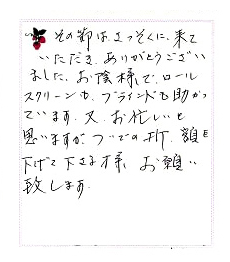 その節は、さっそくに、来て
いただき、ありがとうござい
ました。お陰様で、ロール
スクリーンも、ブラインドも助かっ
ています。又、お忙しいと
思いますが、ついでの所、額を
下げて下さる様、お願い
致します。